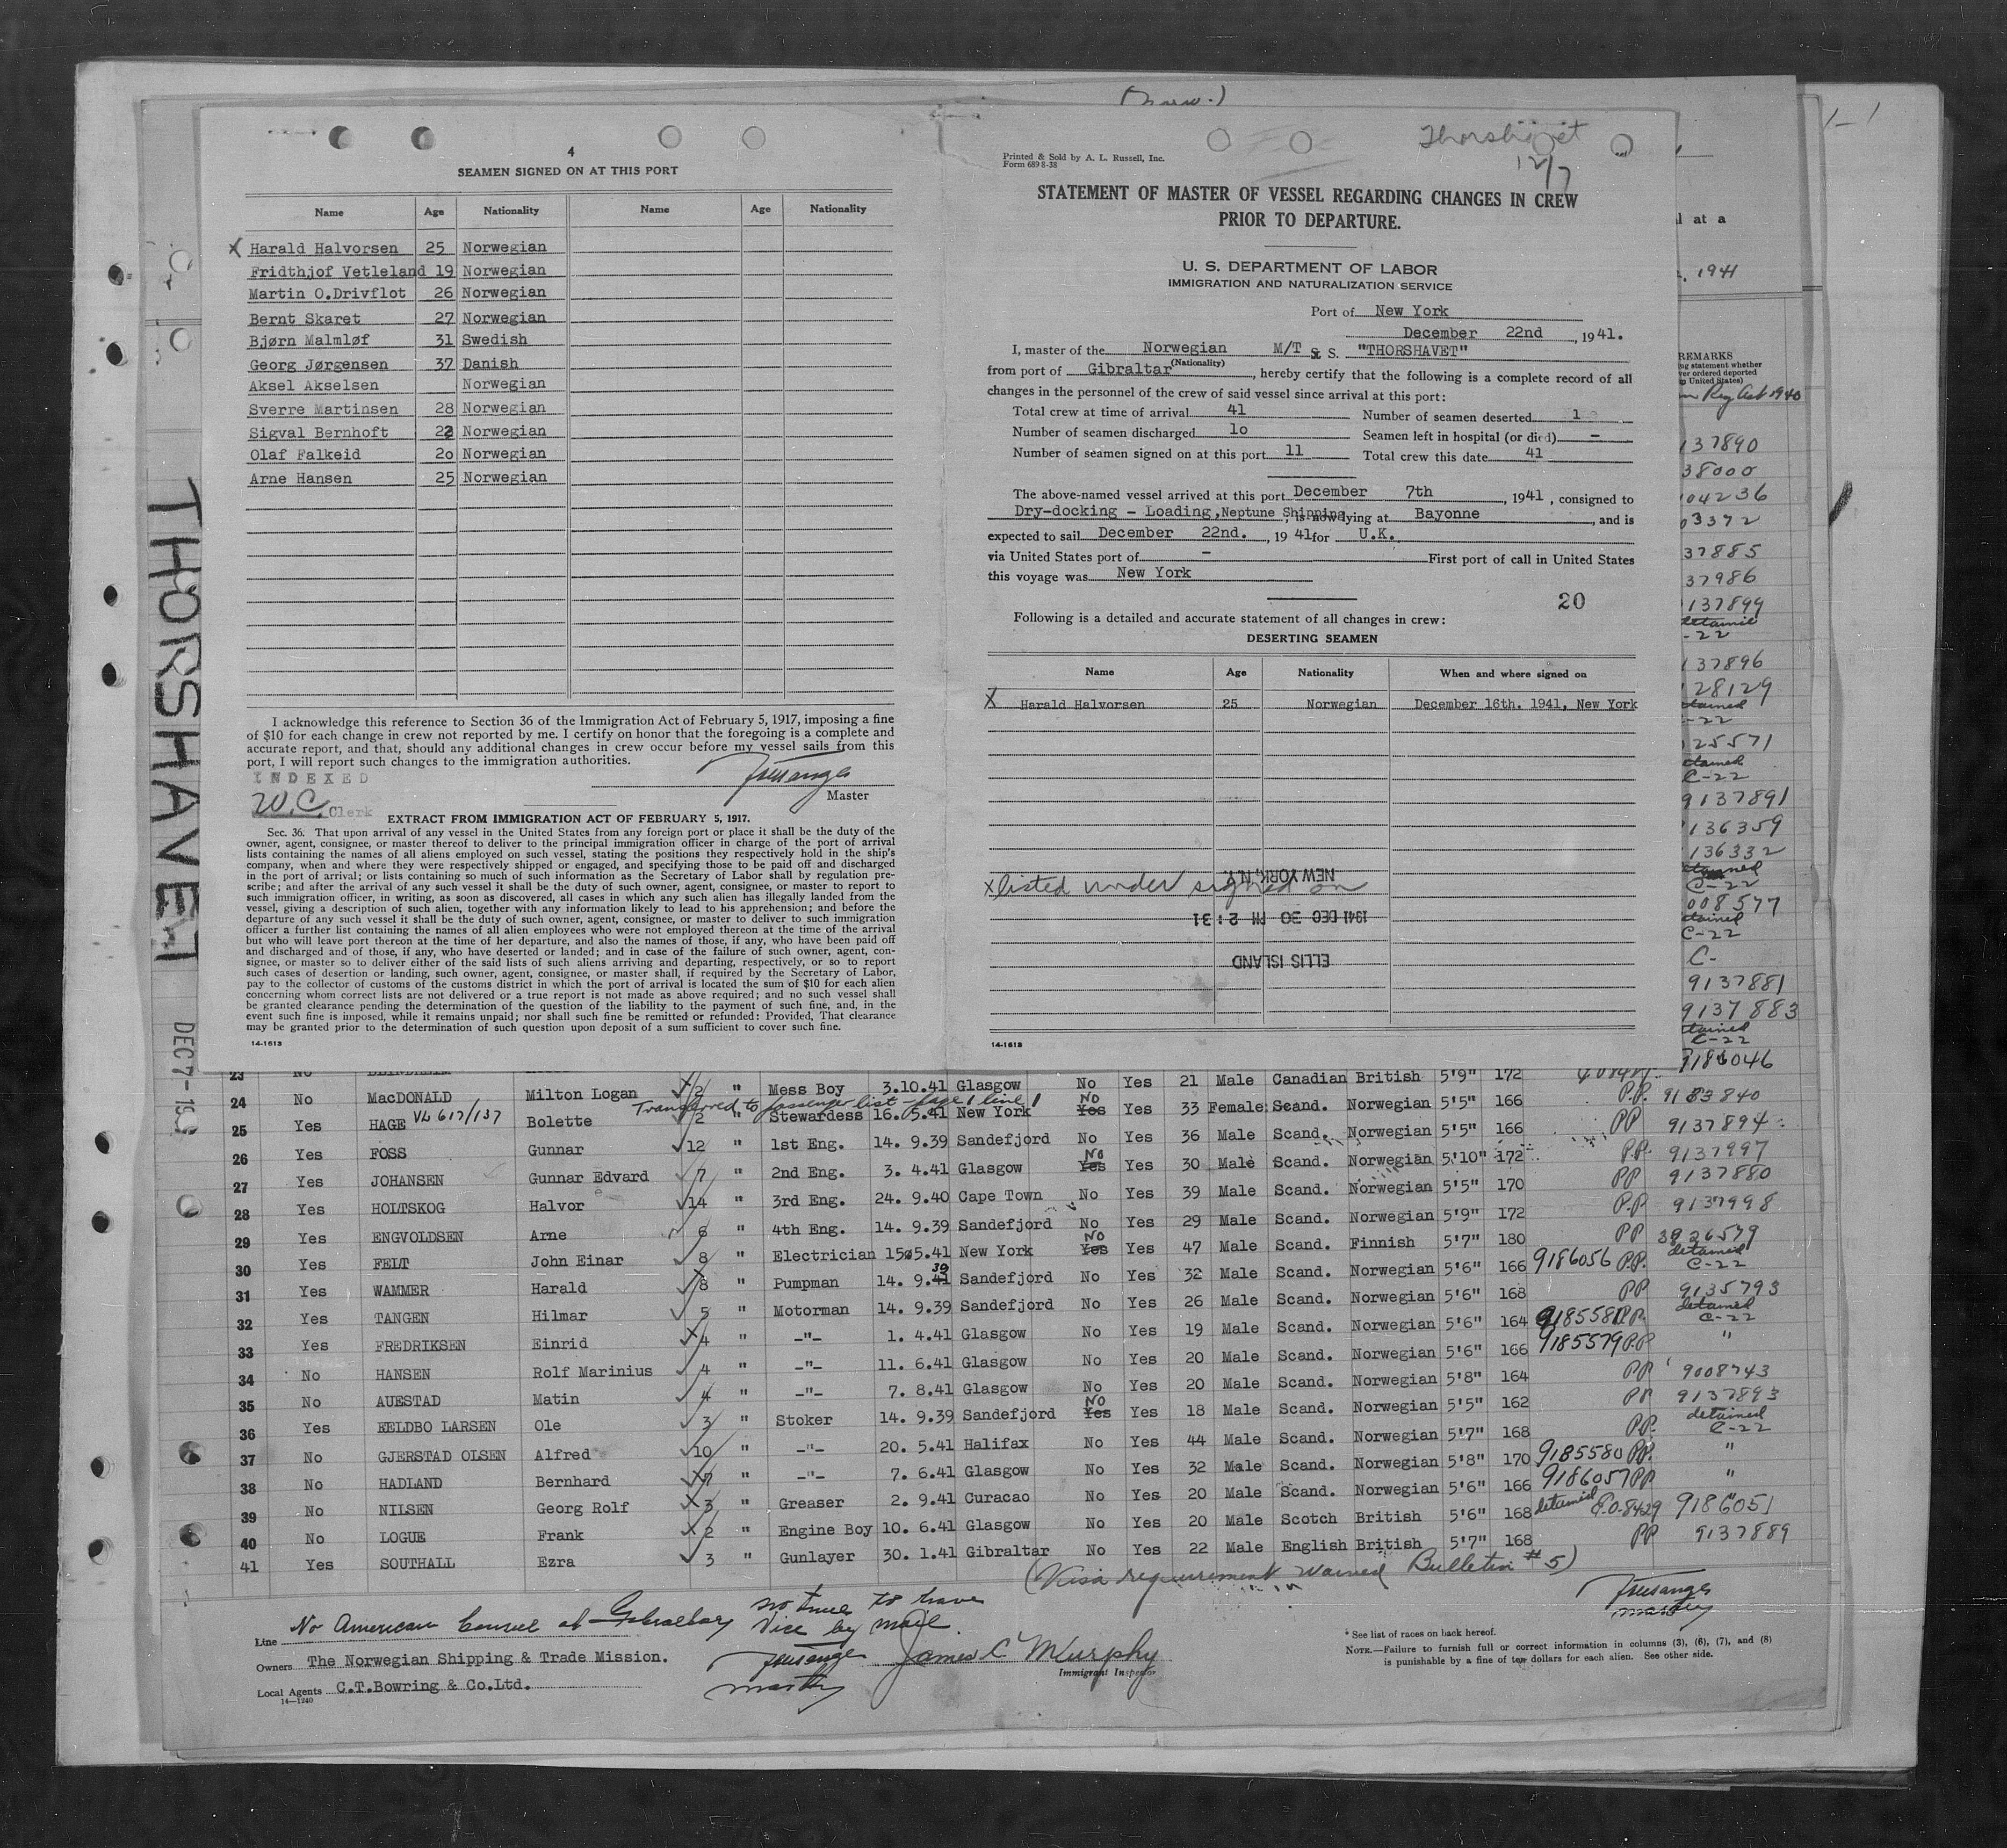 (Norw.)
4
SEAMEN SIGNED ON AT THIS PORT
Name Age Nationality Name Age Nationality
X Harald Halvorsen 25 Norwegian
Fridthjof Vetleland 19 Norwegian
Martin O.Drivflot 26 Norwegian
Bernt Skaret 27 Norwegian
Bjørn Malmløf 31 Swedish
Georg Jørgensen 37 Danish
Aksel Akselsen Norwegian
Sverre Martinsen 28 Norwegian
Sigval Bernhoft 22 Norwegian
Olaf Falkeid 2o Norwegian
Arne Hansen 25 Norwegian
I acknowledge this reference to Section 36 of the Immigration Act of February 5, 1917, imposing a fine
of $10 for each change in crew not reported by me. I certify on honor that the foregoing is a complete and
accurate report, and that, should any additional changes in crew occur before my vessel sails from this
port, I will report such changes to the immigration authorities.
INDEXED
W.C. Clerk
Master
EXTRACT FROM IMMIGRATION ACT OF FEBRUARY 5, 1917.
Sec. 36. That upon arrival of any vessel in the United States from any foreign port or place it shall be the duty of the
owner, agent, consignee, or master thereof to deliver to the principal immigration officer in charge of the port of arrival
lists containing the names of all aliens employed on such vessel, stating the positions they respectively hold in the ship's
company, when and where they were respectively shipped or engaged, and specifying those to be paid off and discharged
in the port of arrival; or lists containing so much of such information as the Secretary of Labor shall by regulation pre-
scribe; and after the arrival of any such vessel it shall be the duty of such owner, agent, consignee, or master to report to
such immigration officer, in writing, as soon as discovered, all cases in which any such alien has illegally landed from the
vessel, giving a description of such alien, together with any information likely to lead to his apprehension; and before the
departure of any such vessel it shall be the duty of such owner, agent, consignee, or master to deliver to such immigration
officer a further list containing the names of all alien employees who were not employed thereon at the time of the arrival
but who will leave port thereon at the time of her departure, and also the names of those, if any, who have been paid off
and discharged and of those, if any, who have deserted or landed; and in case of the failure of such owner, agent, con-
signee, or master so to deliver either of the said lists of such aliens arriving and departing, respectively, or so to report
such cases of desertion or landing, such owner, agent, consignee, or master shall, if required by the Secretary of Labor,
pay to the collector of customs of the customs district in which the port of arrival is located the sum of $10 for each alien
concerning whom correct lists are not delivered or a true report is not made as above required; and no such vessel shall
be granted clearance pending the determination of the question of the liability to the payment of such fine, and, in the
event such fine is imposed, while it remains unpaid; nor shall such fine be remitted or refunded: Provided, That clearance
may be granted prior to the determination of such question upon deposit of a sum sufficient to cover such fine.
14-1613
Thorshavet
12/7
Printed & Sold by A. L. Russell, Inc.
Form 689 8-38
STATEMENT OF MASTER OF VESSEL REGARDING CHANGES IN CREW
PRIOR TO DEPARTURE.
U. S. DEPARTMENT OF LABOR
IMMIGRATION AND NATURALIZATION SERVICE
Port of New York
December 22nd, 1941.
I, master of the Norwegian M/T S. S. "THORSHAVET"
(Nationality)
from port of Gibraltar, hereby certify that the following is a complete record of all
changes in the personnel of the crew of said vessel since arrival at this port:
Total crew at time of arrival 41 Number of seamen deserted 1
Number of seamen discharged 1o Seamen left in hospital (or died) -
Number of seamen signed on at this port 11 Total crew this date 41
The above-named vessel arrived at this port December 7th, 1941, consigned to
Dry-docking - Loading, Neptune Shipping, is now lying at Bayonne, and is
expected to sail December 22nd., 1941 for U.K.
via United States port of - First port of call in United States
this voyage was New York
20
Following is a detailed and accurate statement of all changes in crew:
DESERTING SEAMEN
Name Age Nationality When and where signed on
X Harald Halvorsen 25 Norwegian December 16th. 1941, New York
NEW YORK, N.Y.
x listed under signed on
1941 DEC 30 PM 2:31
ELLIS ISLAND
14-1613
THORSHAVET DEC 7-19
l at a
1941
REMARKS
Reg Act 1940
137890
38000
104236
03372
37885
37986
137899
detained
-22
137896
128129
-22
25571
C-22
9137891
136359
136332
C-22
008577
C-22
C-
9137881
9137883
C-22
9186046
23 No
24 No MacDONALD Milton Logan 2 " Mess Boy 3.10.41 Glasgow No Yes 21 Male Canadian British 5'9" 172
Transferred to passenger list - page 1 line 1
25 Yes HAGE VL 617/137 Bolette 2 " Stewardess 16. 5.41 New York No Yes Yes 33 Female Scand. Norwegian 5'5" 166 P.P. 9183840
26 Yes FOSS Gunnar 12 " 1st Eng. 14. 9.39 Sandefjord No Yes 36 Male Scand. Norwegian 5'5" 166 PP 9137894
27 Yes JOHANSEN Gunnar Edvard 7 " 2nd Eng. 3. 4.41 Glasgow No Yes Yes 30 Male Scand. Norwegian 5'10" 172 P.P. 9137997
28 Yes HOLTSKOG Halvor 14 " 3rd Eng. 24. 9.40 Cape Town No Yes 39 Male Scand. Norwegian 5'5" 170 PP 9137880
29 Yes ENGVOLDSEN Arne 6 " 4th Eng. 14. 9.39 Sandefjord No Yes 29 Male Scand. Norwegian 5'9" 172 P.P 9137998
30 Yes FELT John Einar 8 " Electrician 15.5.41 New York No Yes Yes 47 Male Scand. Finnish 5'7" 180 PP 3926579
31 Yes WAMMER Harald 8 " Pumpman 14. 9.39 Sandefjord No Yes 32 Male Scand. Norwegian 5'6" 166 9186056 P.P. detained C-22
32 Yes TANGEN Hilmar 5 " Motorman 14. 9.39 Sandefjord No Yes 26 Male Scand. Norwegian 5'6" 168 PP 9135793
33 Yes FREDRIKSEN Einrid 4 " -"- 1. 4.41 Glasgow No Yes 19 Male Scand. Norwegian 5'6" 164 9185581 P.P. detained C-22
34 No HANSEN Rolf Marinius 4 " -"- 11. 6.41 Glasgow No Yes 20 Male Scand. Norwegian 5'6" 166 9185579 P.P "
35 No AUESTAD Matin 4 " -"- 7. 8.41 Glasgow No Yes 20 Male Scand. Norwegian 5'8" 164 PP 9008743
36 Yes EELDBO LARSEN Ole 3 " Stoker 14. 9.39 Sandefjord No Yes Yes 18 Male Scand. Norwegian 5'5" 162 PP 9137893
37 No GJERSTAD OLSEN Alfred 10 " -"- 20. 5.41 Halifax No Yes 44 Male Scand. Norwegian 5'7" 168 PP. detained C-22
38 No HADLAND Bernhard 7 " -"- 7. 6.41 Glasgow No Yes 32 Male Scand. Norwegian 5'8" 170 9185580 P.P. "
39 No NILSEN Georg Rolf 3 " Greaser 2. 9.41 Curacao No Yes 20 Male Scand. Norwegian 5'6" 166 9186057 PP "
40 No LOGUE Frank 2 " Engine Boy 10. 6.41 Glasgow No Yes 20 Male Scotch British 5'6" 168 detained 9186051
41 Yes SOUTHALL Ezra 3 " Gunlayer 30. 1.41 Gibraltar No Yes 22 Male English British 5'7" 168 PP 9137889
(Visa requirement waived Bulletin #5)
No American Consul at Gibraltar, no time to have
Vice by mail.
master
Line
Owners The Norwegian Shipping & Trade Mission.
Local Agents C.T.Bowring & Co.Ltd.
14-1240
master
James C Murphy
Immigrant Inspector
* See list of races on back hereof.
NOTE.—Failure to furnish full or correct information in columns (3), (6), (7), and (8)
is punishable by a fine of ten dollars for each alien. See other side.